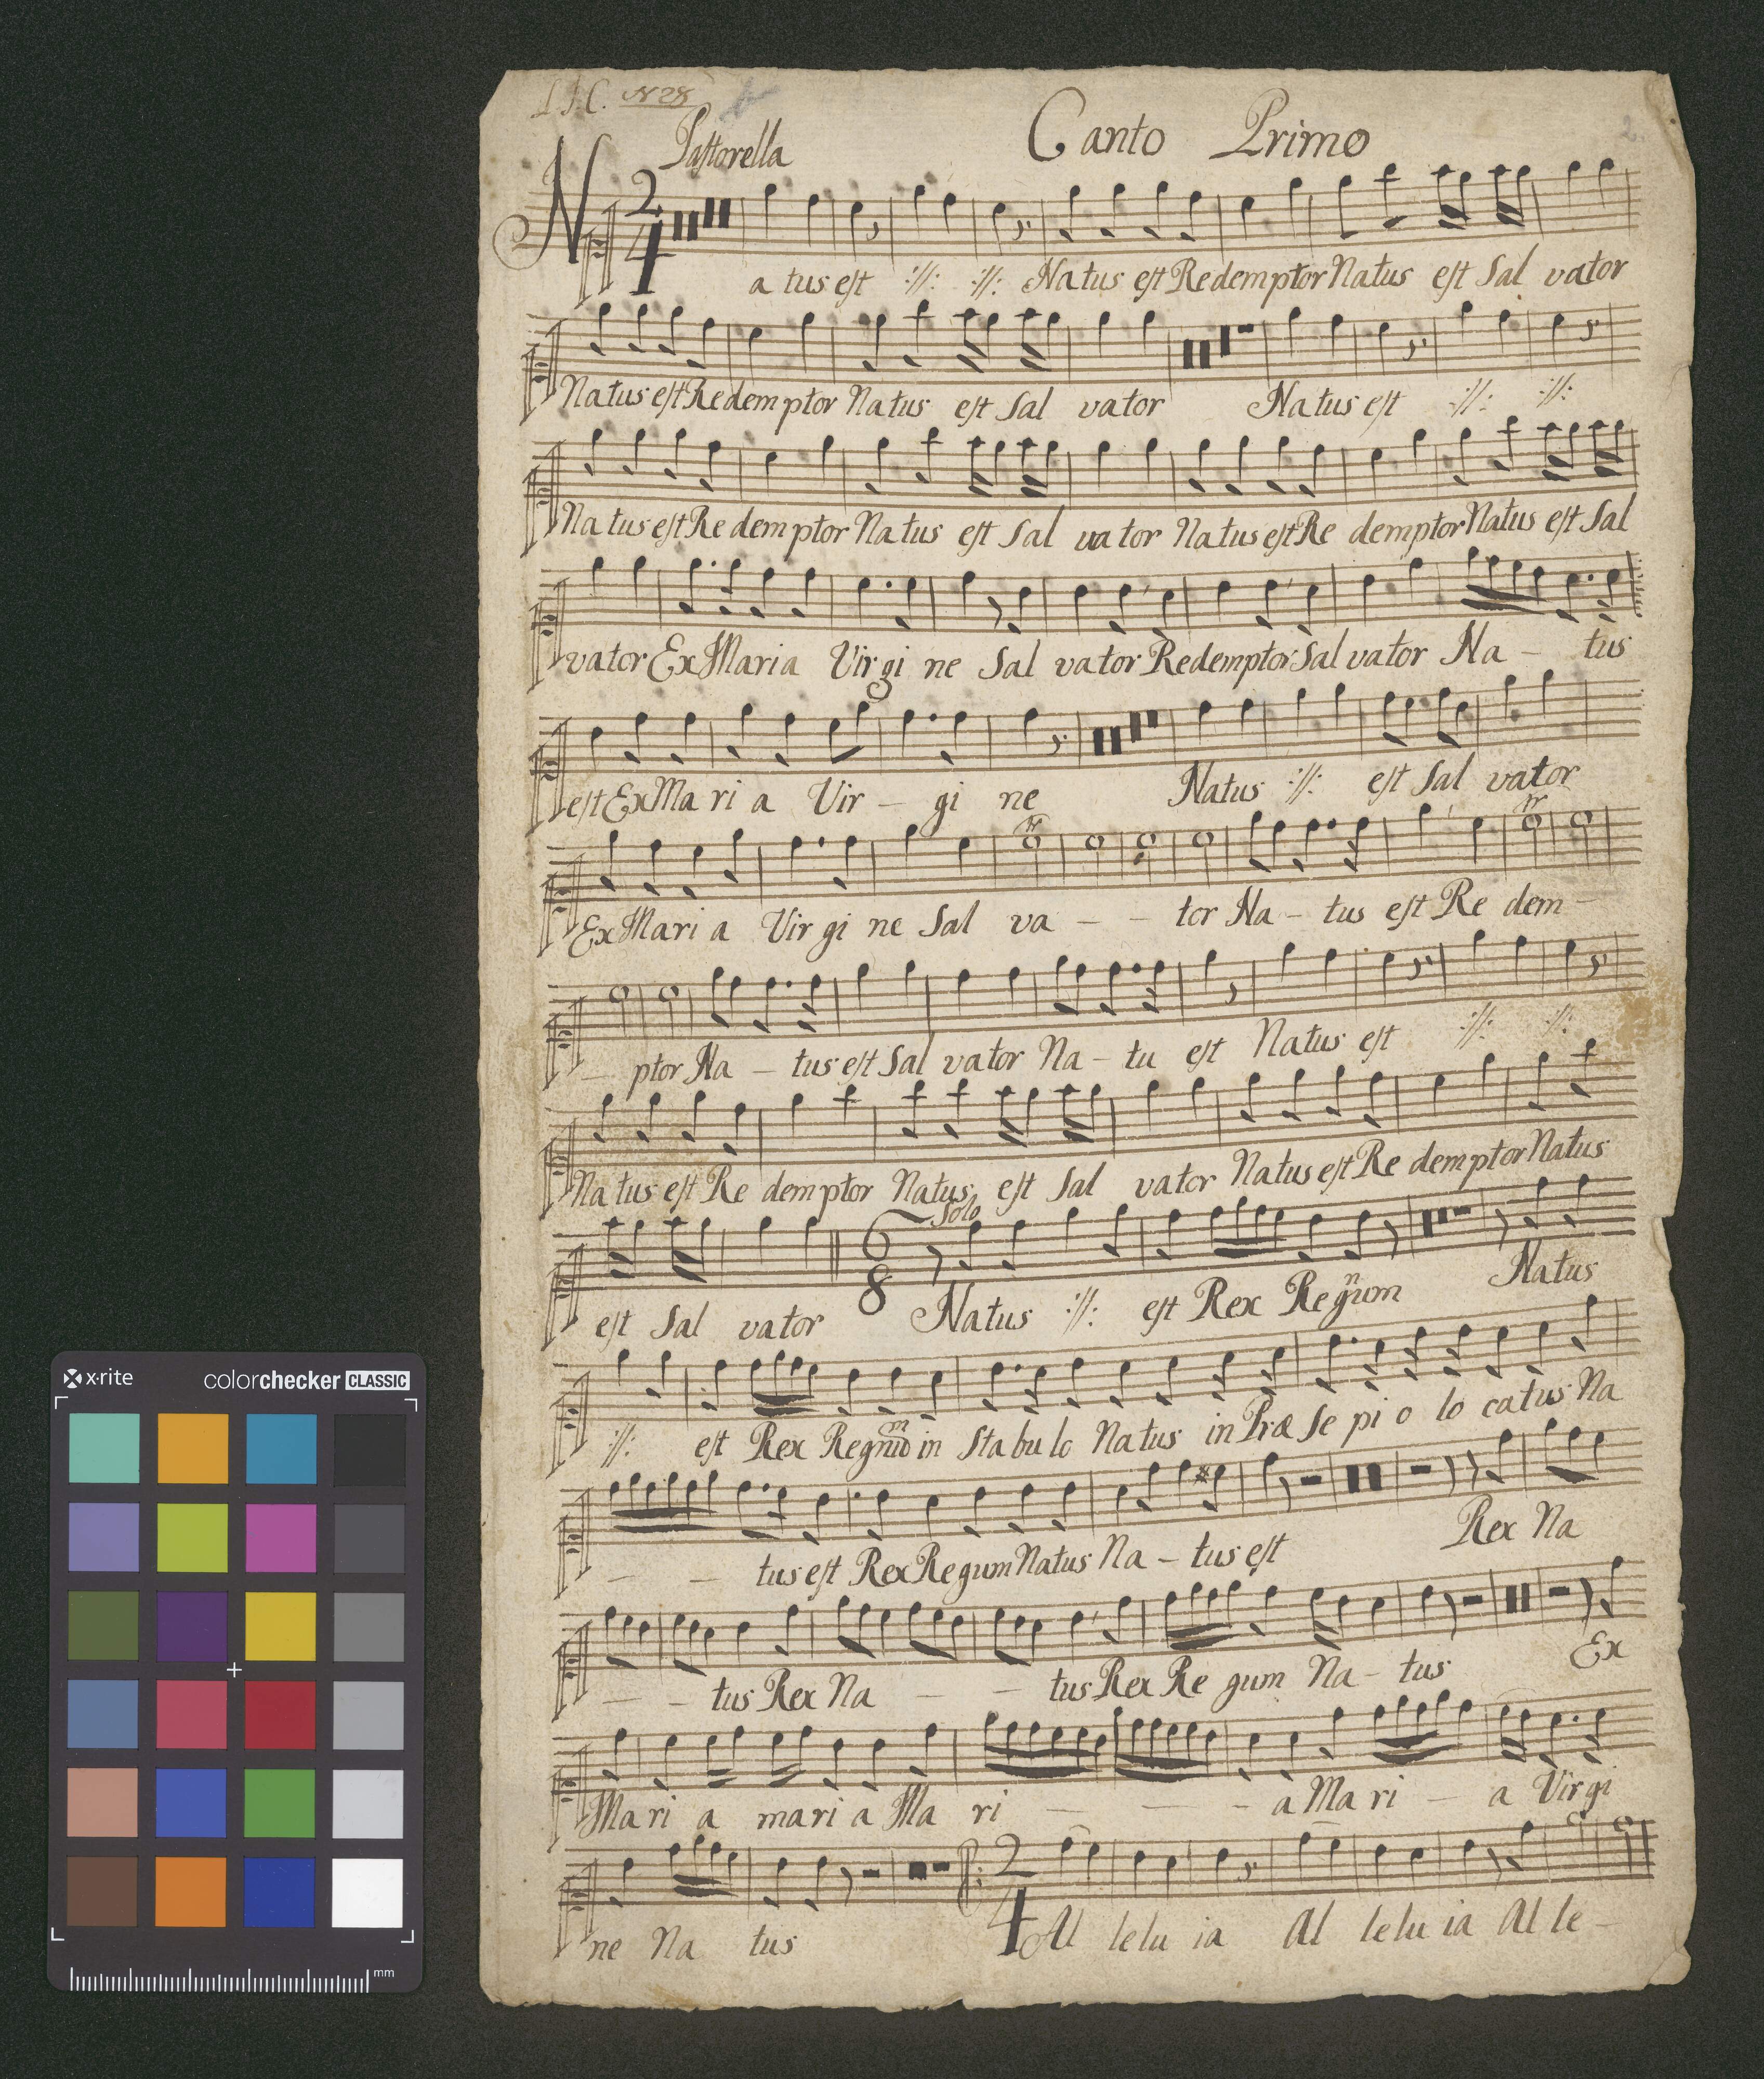 L.J.C. N 28
Pastorella Canto Primo 2
2/4
Natus est :/: :/: Natus est Redemptor Natus est Sal vator
Natus est Redemptor Natus est Sal vator Natus est :/: :/:
Na tus est Re demptor Natus est Sal va tor Natus est Re demptor Natus est Sal
vator Ex Maria Virgi ne Sal vator Redemptor Sal vator Na - tus
est Ex Ma ri a Vir - gi ne Natus :/: est Sal vator
tr tr
Ex Mari a Vir gi ne Sal va - - tor Na - tus est Re dem -
- ptor Na - tus est Sal vator Na - tu est Natus est :/: :/:
Na tus est Re demptor Natus est Sal vator Natus est Re demptor Natus
Solo
6/8
est Sal vator Natus :/: est Rex Regum Natus
:/: est Rex in Stabulo Natus in Præ Se pi o lo catus Na
- - tus est Rex Regum Natus Na - tus est Rex Na
- - tus Rex Na - - tus Rex Re gum Na - tus Ex
Mari a mari a Ma ri - - - a Ma ri - a Virgi
2/4
ne Na tus Al lelu ia Al lelu ia Al le -
x-rite colorchecker CLASSIC
mm